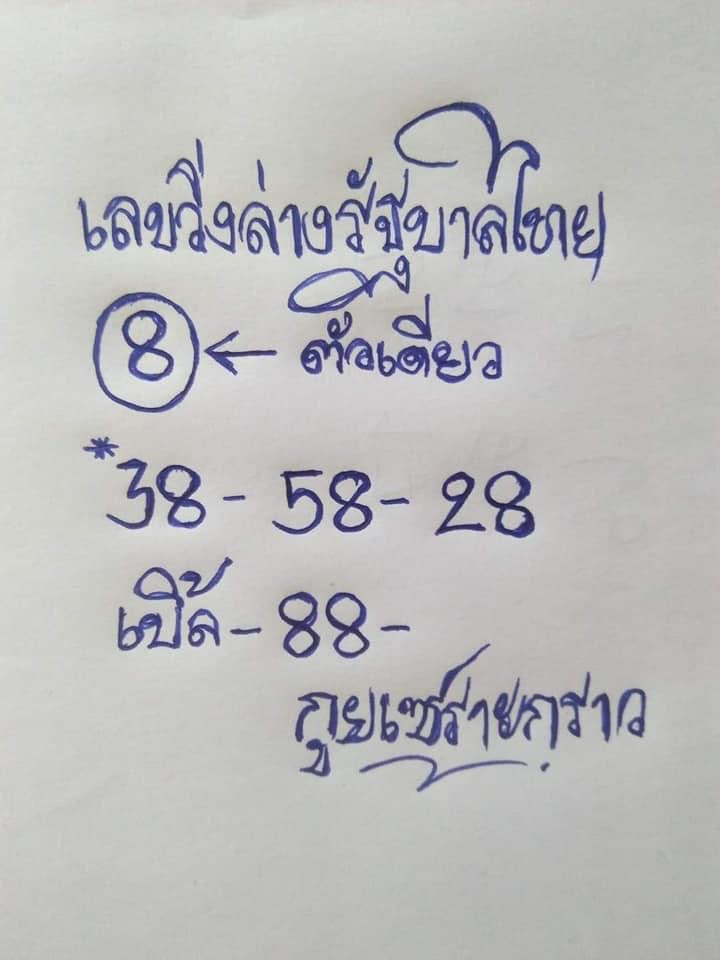 เลขวิ่งล่างรัฐบาลไทย
8 ← ตัวเดียว
*38 - 58 - 28
เบิ้ล - 88 -
กูยเซราะกราว